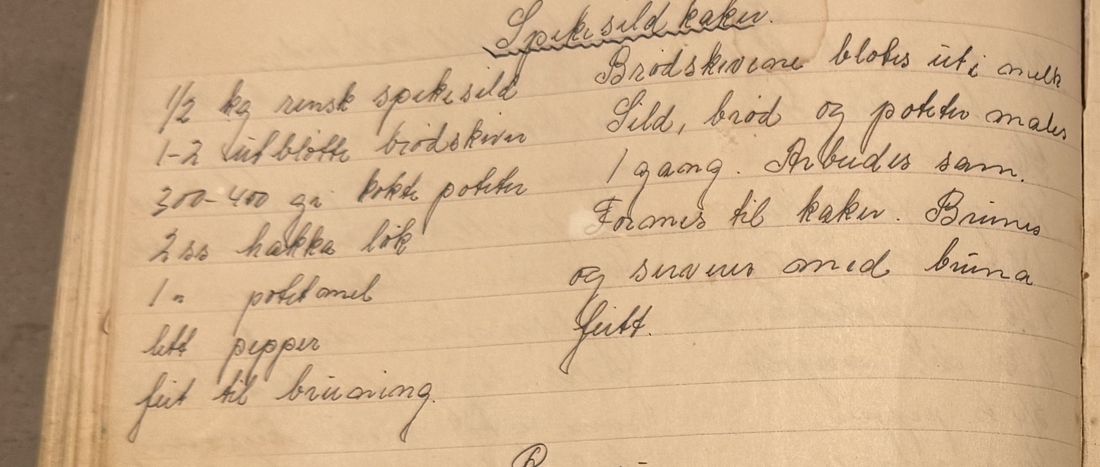 Spikesildkaker.
1/2 kg rensk spikesild
1-2 utbløtte brødskiver
300-400 gr kokte poteter
2 ss hakka løk
1 " potetmel
litt pepper
feit til bruning.
Brødskivene bløtes ut i melk
Sild, brød og poteter males
1 gang. Arbeides sam.
Formes til kaker. Brunes
og serveres med bruna
feitt.